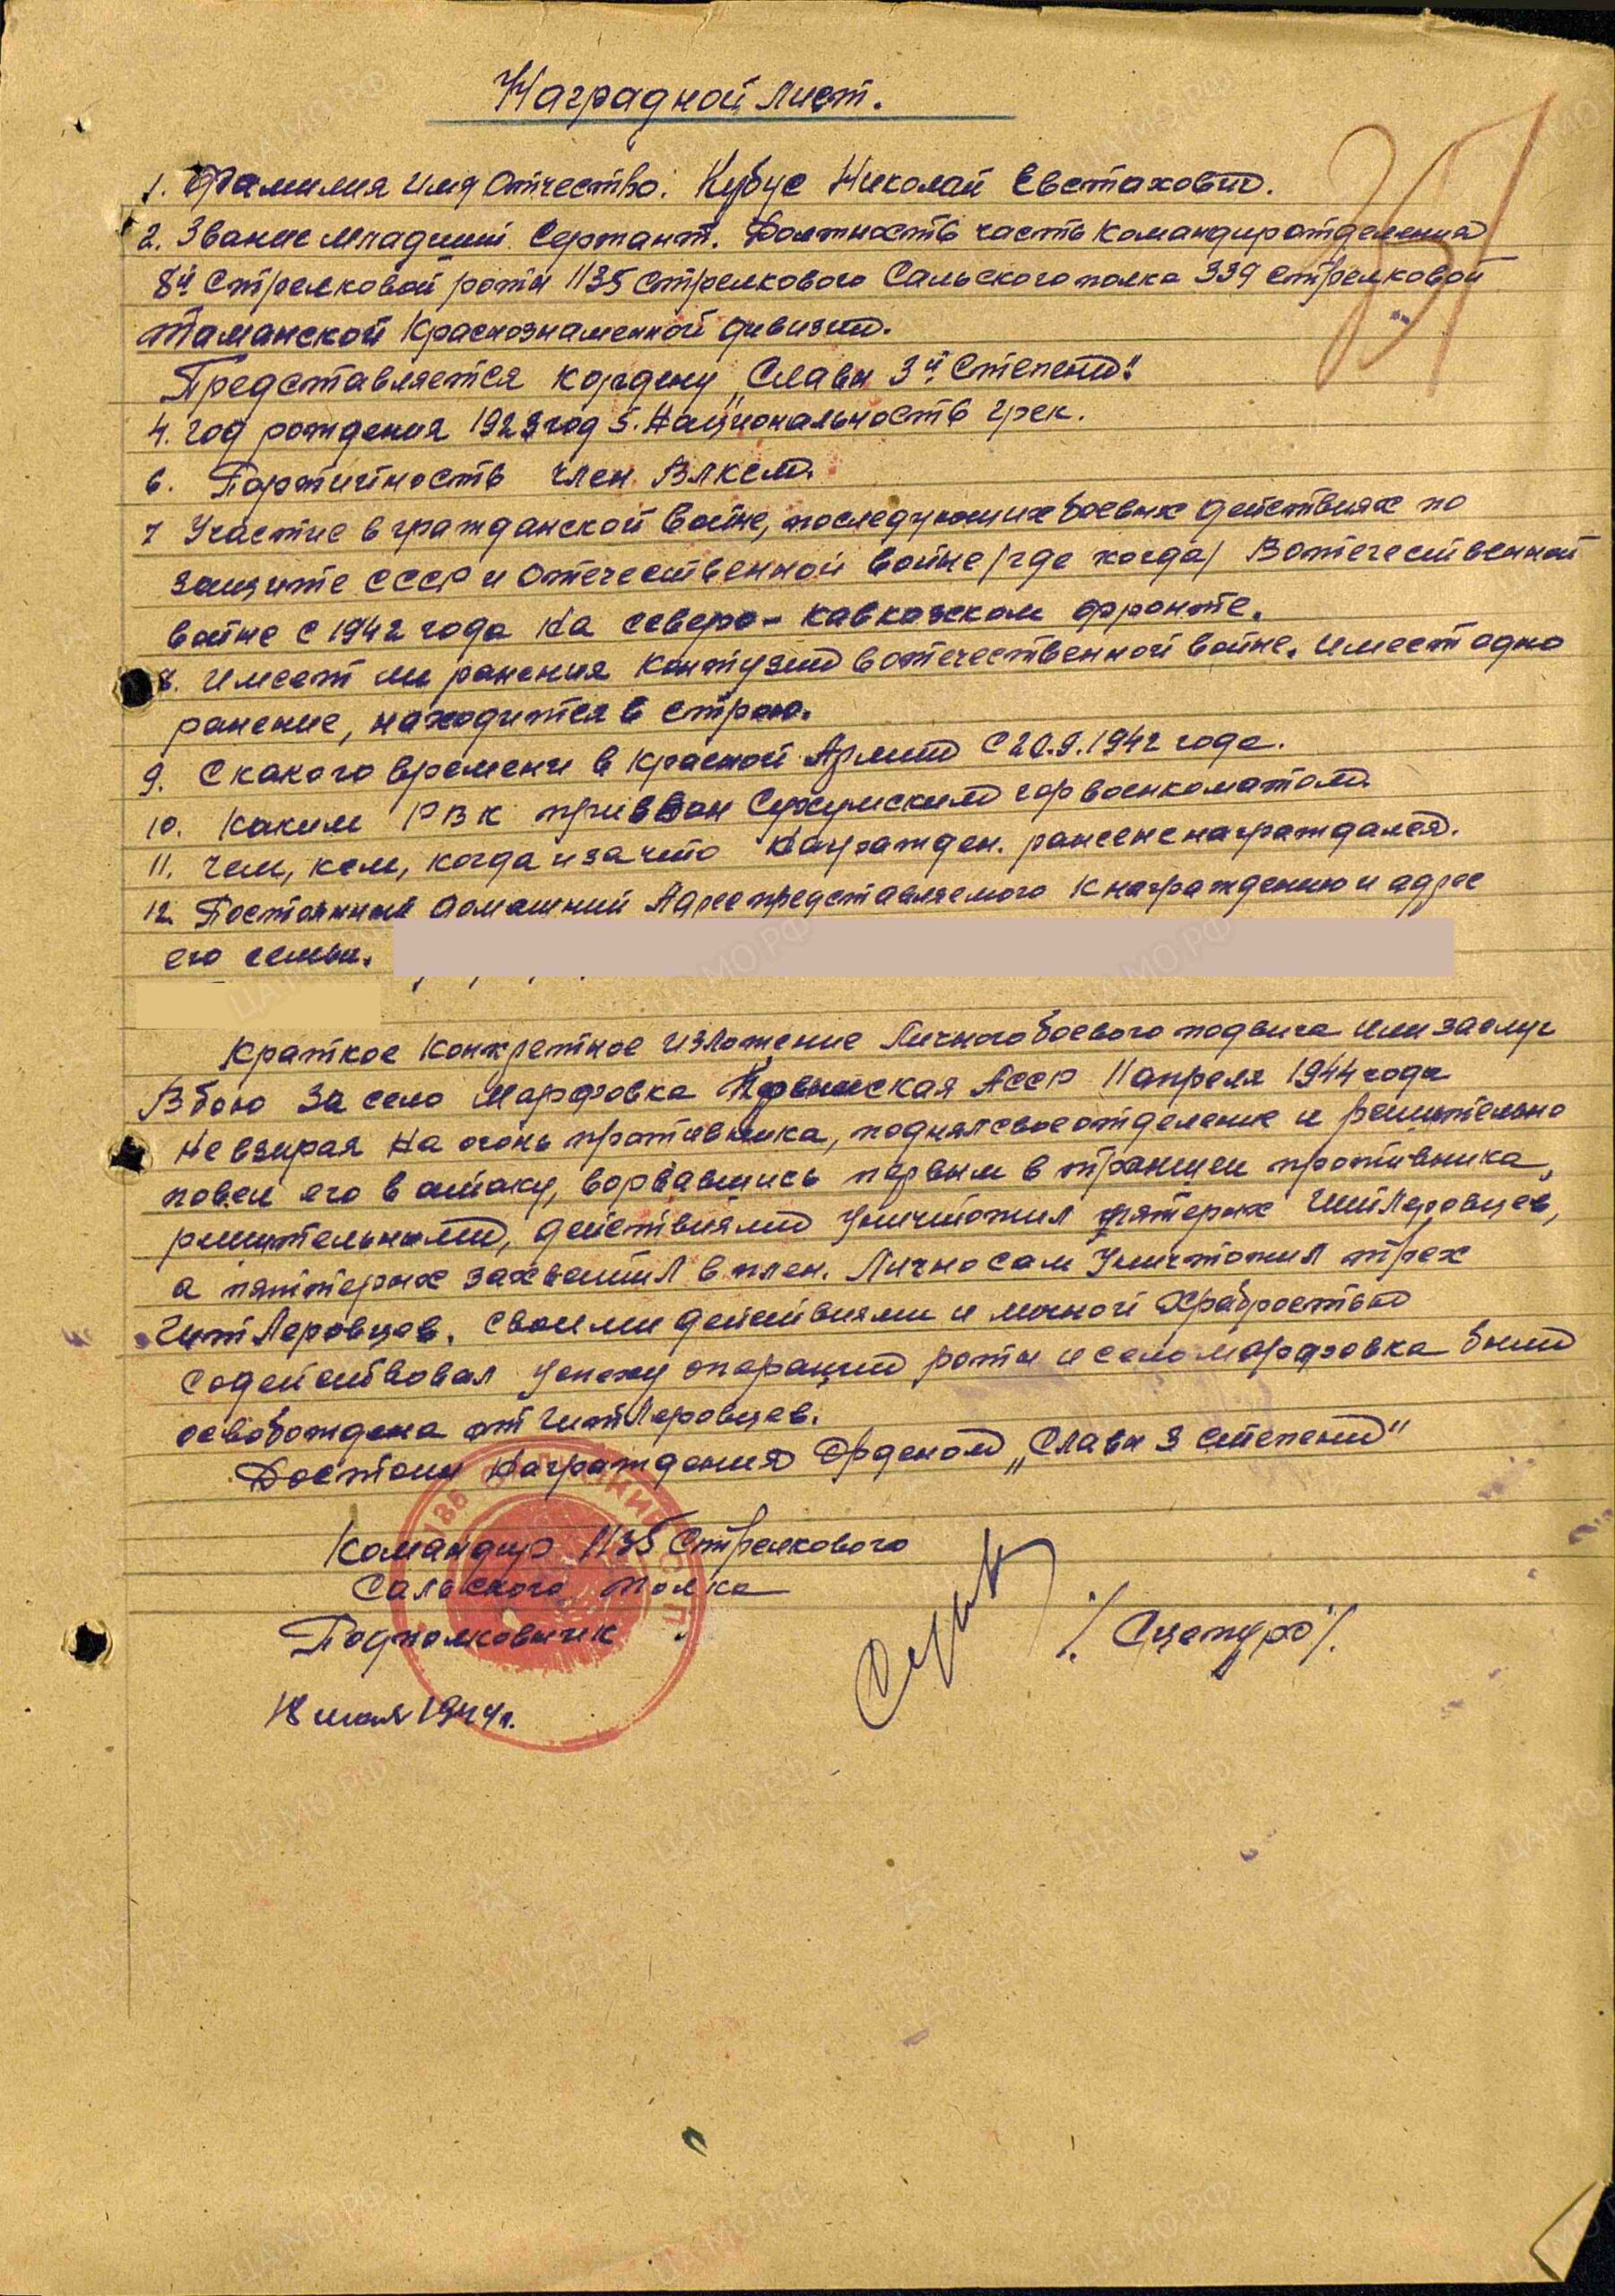 Наградной лист.
351
1. Фамилия Имя Отчество. Кубус Николай Евстахович.
2. Звание Младший Сержант. Должность часть Командир отделения
8й Стрелковой роты 1135 Стрелкового Сальского полка 339 стрелковой
Таманской Краснознаменной дивизии.
Представляется к ордену „Славы 3й Степени"
4. год рождения 1923 год 5. Национальность грек.
6. Партийность член ВЛКСМ.
7 Участие в гражданской войне, последующих боевых действиях по
защите СССР и Отечественной войне /где когда/ В отечественной
войне с 1942 года На северо-Кавказском фронте.
8. Имеет ли ранения Контузии в отечественной войне. Имеет одно
ранение, находится в строю.
9. С какого времени в Красной Армии С 20.9.1942 года.
10. Каким РВК призван Сухумским горвоенкоматом.
11. Чем, кем, когда и за что Награжден. ранее не награждался.
12. Постоянный домашний Адрес представляемого К награждению и адрес
его семьи.
Краткое Конкретное изложение Личного боевого подвига или заслуг
В бою За село Марфовка Крымская АССР 11 апреля 1944 года
Не взирая На огонь противника, поднял свое отделение и решительно
повел его в атаку, ворвавшись первым в траншеи противника,
решительными, действиями Уничтожил пятерых Гитлеровцев,
а пятерых захватил в плен. Лично сам Уничтожил трех
Гитлеровцев. Своими действиями и личной Храбростью
содействовал Успеху операции роты и село марфовка были
освобождена от Гитлеровцев.
Достоин Награждения Орденом „Славы 3 степени"
Командир 1135 Стрелкового
Сальского полка
Подполковник
/Сцепуро/.
18 мая 1944 г.
ЦАМО.РФ